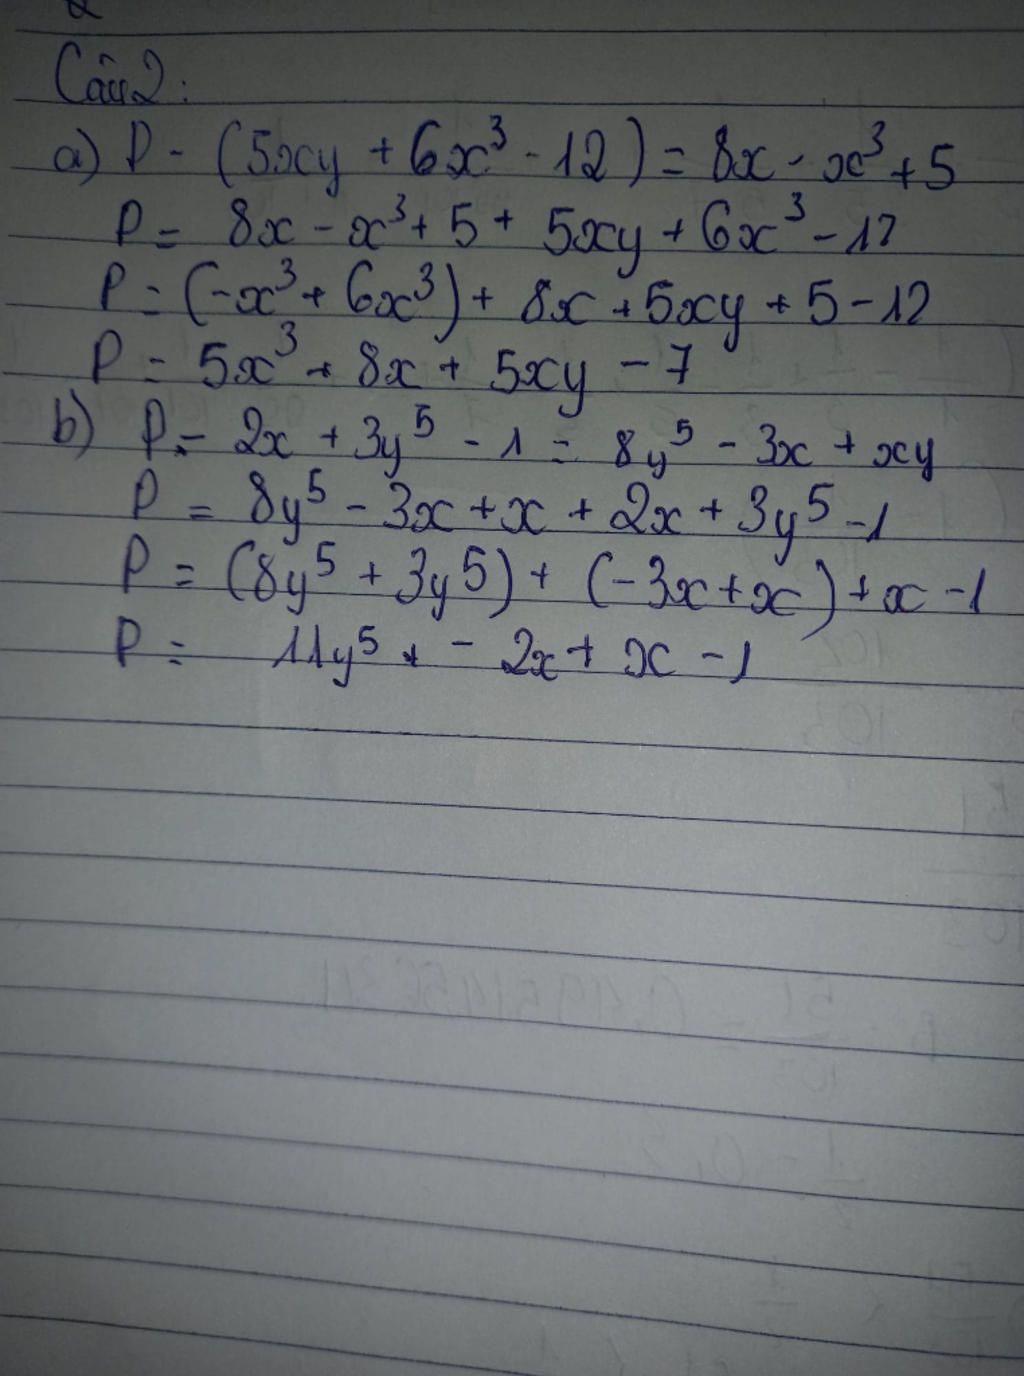 Câu 2:
a) P - (5xy + 6x³ - 12) = 8x - x³ + 5
P = 8x - x³ + 5 + 5xy + 6x³ - 12
P = (-x³ + 6x³) + 8x + 5xy + 5 - 12
P = 5x³ + 8x + 5xy - 7
b) P - 2x + 3y⁵ - 1 = 8y⁵ - 3x + xy
P = 8y⁵ - 3x + x + 2x + 3y⁵ - 1
P = (8y⁵ + 3y⁵) + (-3x + x) + x - 1
P = 11y⁵ + - 2x + x - 1